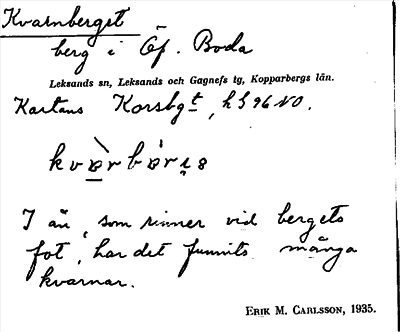 Kvarnberget
berg i Öf. Boda
Leksands sn, Leksands och Gagnefs tg, Kopparbergs län.
Kartans Korsbgt, h596NO.
I än, som rinner vid bergets
fot, har det funnits många
kvarnar.
ERIK M. CARLSSON, 1935.